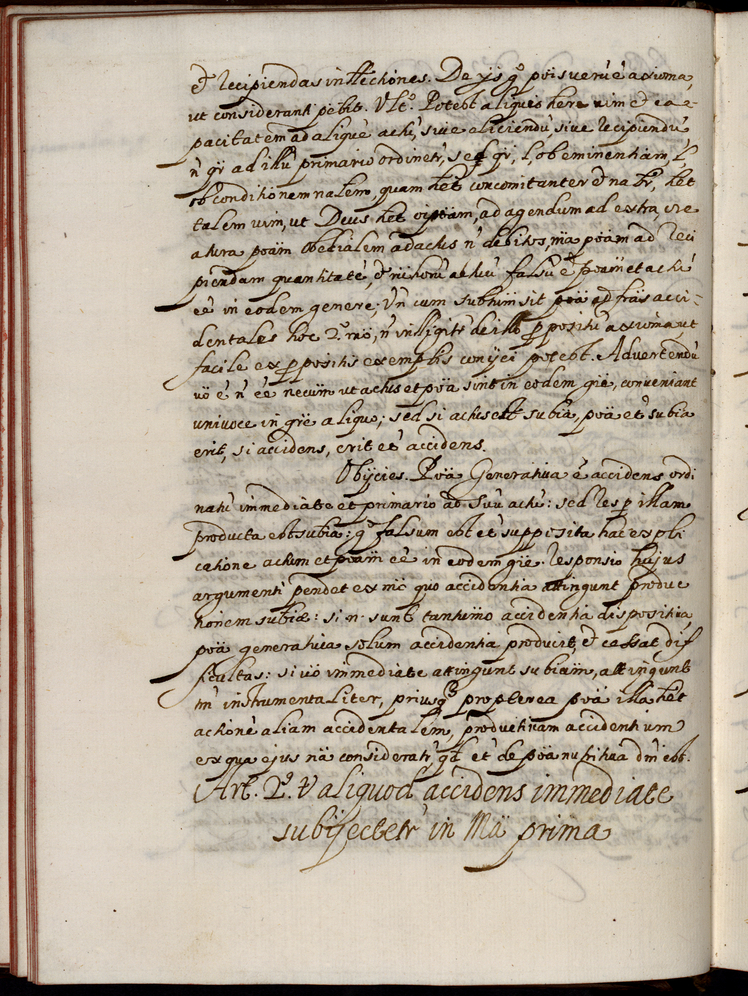 & recipiendas intellectiones. De ijs gͦ pōis verū ē axioma,
ut considerant pebit. Ult.ͦ Potest aliquis here vim & ca-
pacitatem ad aliquē actū, sive eliciendū sive recipiendū,
n̄ qr ad illū primario ordinetr, sed qr, l, ob eminentiam, l
ob conditionem nalem, quam het concomitanter & nar̄, het
talem vim, ut Deus het oīpoām, ad agendum ad extra, cre
atura poām obedialem ad actus n̄ debitos, mā poām ad reci
piendam quantitatē, &
eē in eodem genere; Un̄ cum subiim sit poā ad frās acci-
dentales hoc 2.ͦ mō, n̄ intlligitr de illo pp̄ositū axioma ut
facile ex pp̄ositis exemplis conijci potest. Advertendū
vō ē n̄ eē necūm ut actus et poā sint in eodem gn̄e, conveniant
univoce in gn̄e aliquo; sed si actus est subīa, poā et subīa
erit, si accidens, erit et accidens.
Obijcies. Poā Generativa ē accidens ordi
natū immediate et primario ad suū actū: sed res p illam
producta est subīa; gͦ falsum est et supposita hac expli
catione actum et poām eē in eodem gn̄e. Responsio hujus
argumenti pendet ex mō quo accidentia attingunt produc
tionem subīæ: si n. sunt tantūmo accidentia dispositiva,
poā generativa solum accidentia producit, & cessat dif
ficultas: si vō immediate attingunt subīam, attingunt
tn̄ instrumentaliter, priusq̄ propterea poā illa het
actionē aliam accidentalem, productivam accidentium
ex qua ejus nā consideratr, qd et de poā nutritiva dm̄ est.
Art. 2.ͦ U aliquod accidens immediate
subijectetr in Mā prima